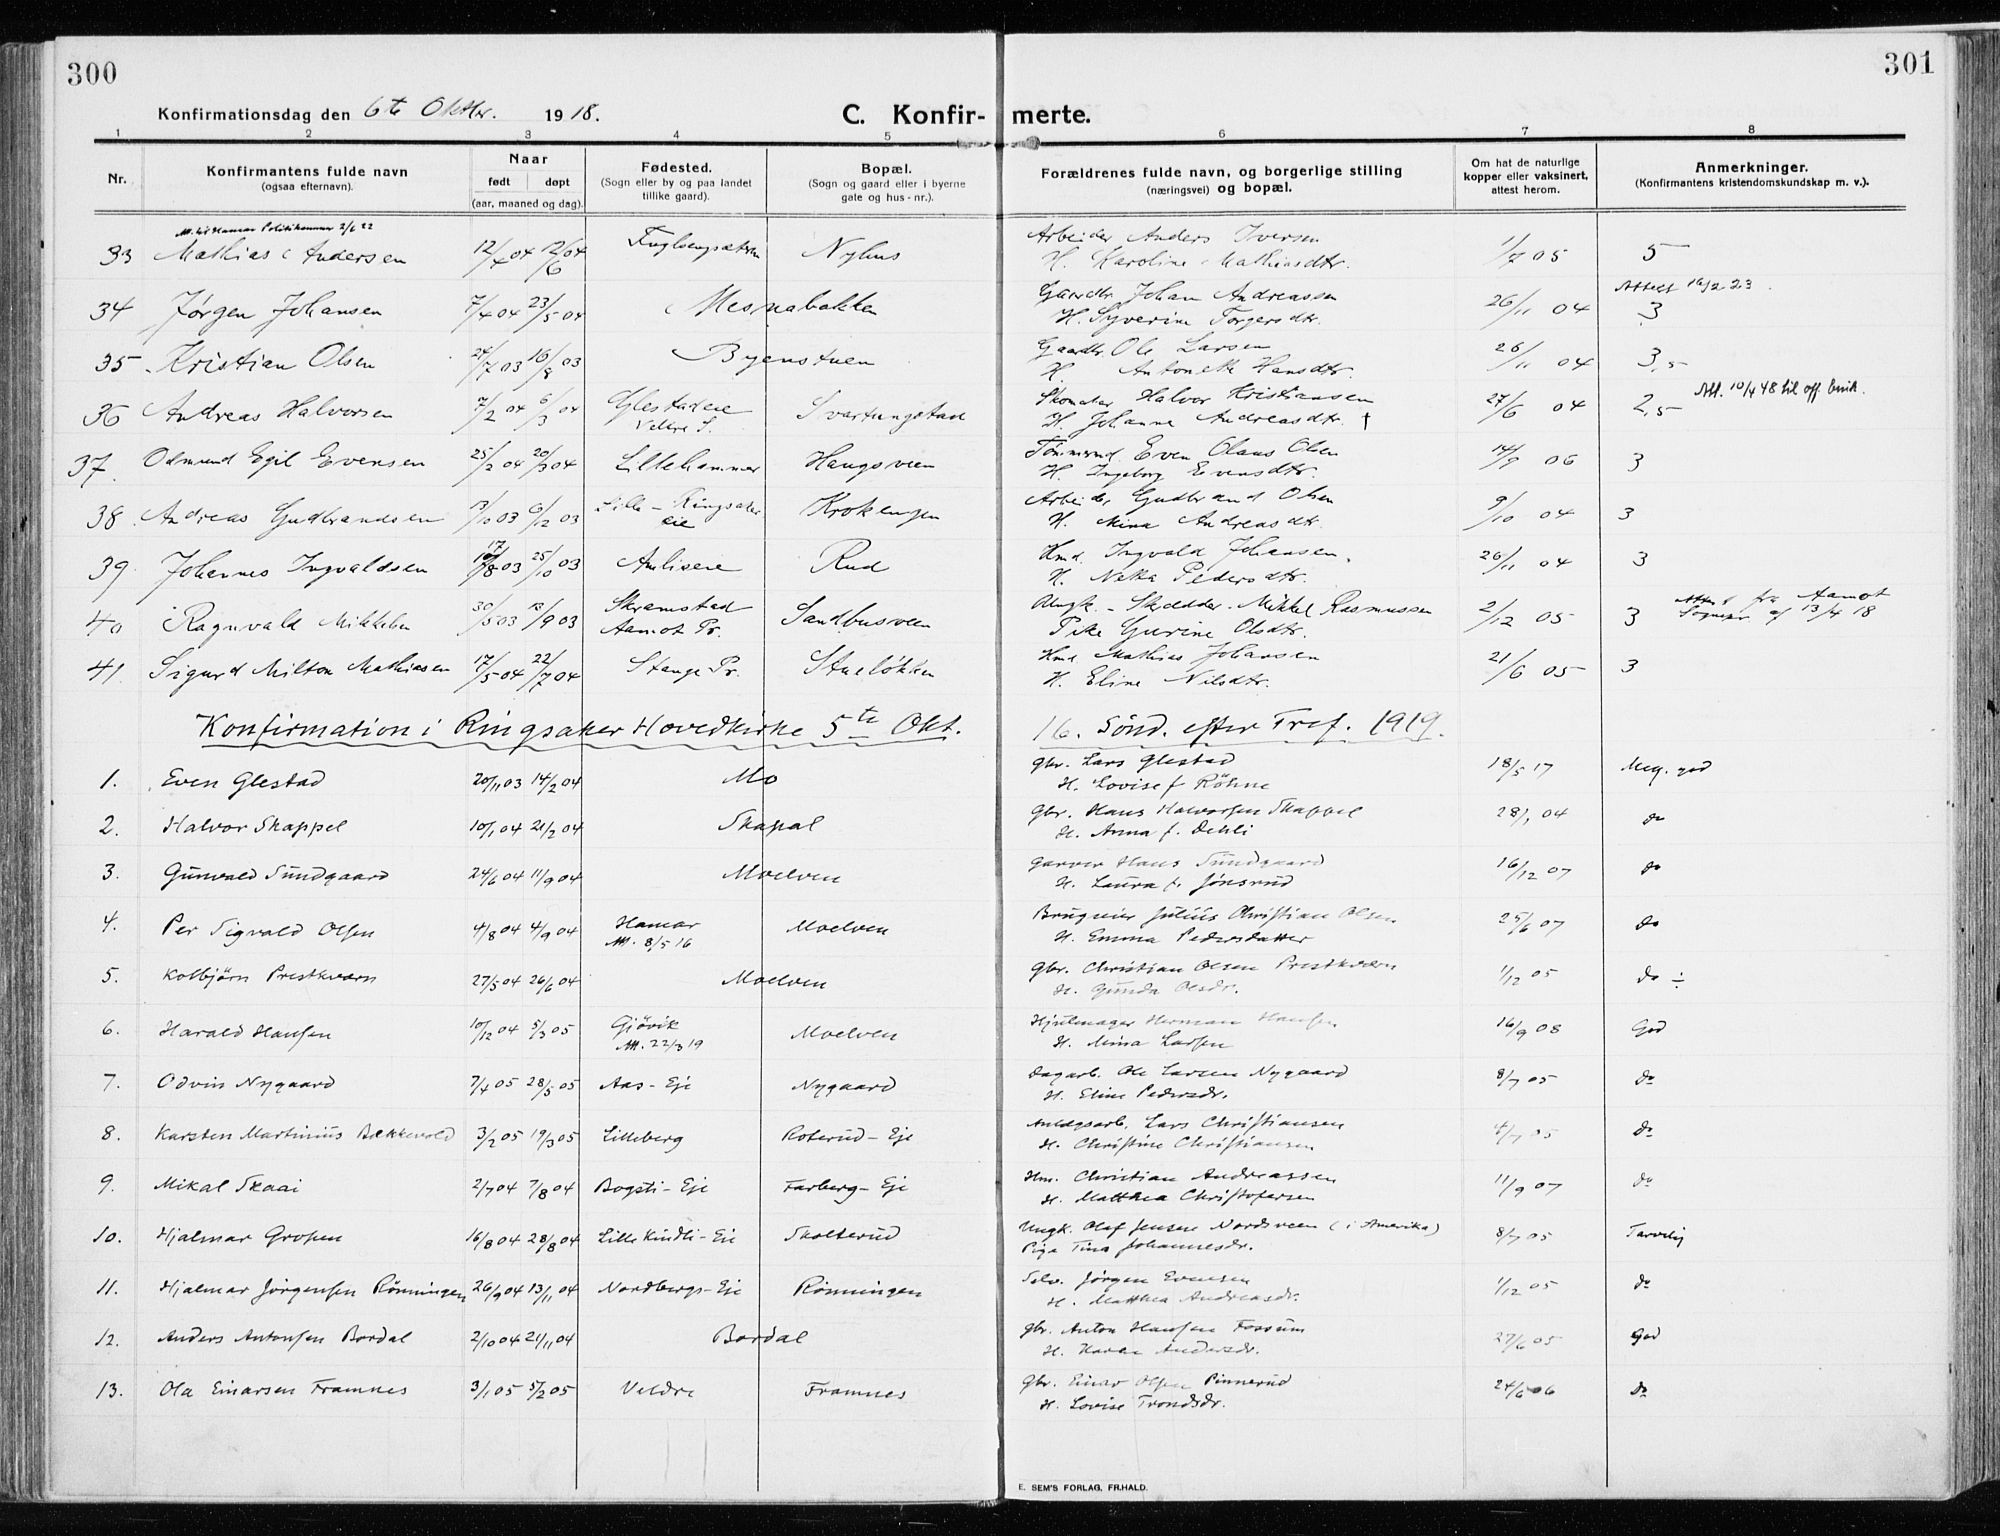 300
301
Konfirmationsdag den 6te Oktbr. 1918.
C. Konfir- merte.
1 2 3 4 5 6 7 8
Nr.
Konfirmantens fulde navn
(ogsaa efternavn).
Naar
født døpt
(aar, maaned og dag).
Fødested.
(Sogn eller by og paa landet
tillike gaard).
Bopæl.
(Sogn og gaard eller i byerne
gate og hus-nr.).
Forældrenes fulde navn, og borgerlige stilling
(næringsvei) og bopæl.
Om hat de naturlige
kopper eller vaksinert,
attest herom.
Anmerkninger.
(Konfirmantens kristendomskundskap m. v.).
Att. til Hamar Politikammer 2/6 22
33 Mathias Andersen 12/4 04 12/6 04 Nyhus Arbeider Anders Iversen 1/7 05 5
H. Karoline Mathiasdtr.
Attest 16/2 23.
34 Jørgen Johansen 7/4 04 23/5 04 Mesnabakken Gaardbr. Johan Andreassen 26/11 04 3
H. Syverine Torgersdtr.
35 Kristian Olsen 24/7 03 16/8 03 Byenstuen Gaardbr. Ole Larsen 26/11 04 3,5
H. Antonette Hansdtr.
36 Andreas Halvorsen 7/2 04 6/3 04 Glestadeie Svartungstad Skomaker Halvor Kristiansen 27/6 04 2,5 Att. 10/4 48 til off. bruk.
Veldre S. H. Johanne Andreasdtr. †
37. Odmund Egil Evensen 25/2 04 20/3 04 Lillehammer Haugsveen Tømmermd. Even Olaus Olsen 14/9 06 3
H. Ingeborg Evensdtr.
38. Andreas Gudbrandsen 13/10 03 6/12 03 Lille-Ringsaker Krokengen Arbeider Gudbrand Olsen 9/10 04 3
eie H. Mina Andreasdtr.
39 Johannes Ingvaldsen 17/8 03 25/10 03 Amliseie Rud Hmd. Ingvald Johansen. 26/11 04 3
H. Nekka Pedersdtr.
40 Ragnvald Mikkelsen 30/5 03 13/9 03 Skramstad Sandbusveen Ungk. - Skrædder. Mikkel Rasmussen 2/12 05 3 Attest fra Aamot
Aamot Pr. Pike Gurine Olsdtr. Sognepr. af 13/4 18
41. Sigurd Milton Mathiasen 17/5 04 22/7 04 Stange Pr. Stueløkken Hmd. Mathias Johansen 21/6 05 3
H. Eline Nilsdtr.
Konfirmation i Ringsaker Hovedkirke 5te Okt. 16. Sönd. efter Tref. 1919.
1. Even Glestad 20/11 03 14/2 04 Mo Gbr. Lars Glestad 18/5 17 Meg. god
H. Lovise f. Röhne
2. Halvor Skappel 10/1 04 21/2 04 Skapal Gbr. Hans Halvorsen Skappel 28/1 04 do
H. Anna f. Dehli
3. Gunvald Sundgaard 24/6 04 11/9 04 Moelven Garver Hans Sundgaard 16/12 07 do
H. Laura f. Jönsrud
4. Per Sigvald Olsen 4/8 04 4/9 04 Hamar Moelven Brugseier Julius Christian Olsen 25/6 07 do
Att. 8/5 16 H. Emma Pedersdatter
5. Kolbjörn Prestkværn 27/5 04 26/6 04 Moelven Gbr. Christian Olsen Prestkværn 1/12 05 do ÷
H. Gunda Olsdr.
6. Harald Hansen 10/12 04 5/3 05 Gjövik Moelven Hjulmager Herman Hansen 16/9 08 God
Att. 22/3 19 H. Mina Larsen
7. Odvin Nygaard 7/4 05 28/5 05 Aas-Eje Nygaard Dagarb. Ole Larsen Nygaard 8/7 05 do
H. Eline Pedersdr.
8. Karsten Martinius Bækkevold 3/2 05 19/3 05 Lilleberg Roterud-Eje Anlægsarb. Lars Christiansen 4/7 05 do
H. Christine Christiansen
9. Mikal Skaai 2/7 04 7/8 04 Bogsti-Eje Farberg-Eje Hm. Christian Andreassen 11/9 07 do
H. Matthea Christofersen
10. Hjalmar Gropen 16/8 04 28/8 04 Lille Kindli-Eie Skolterud Ungk. Olaf Jensen Nordsveen (i Amerika) 8/7 05 Tarvelig
Pige Tina Johannesdr.
11. Hjalmar Jörgensen Rönningen 26/9 04 13/11 04 Nordbergs-Eie Rönningen Selv. Jörgen Evensen 1/12 05 do
H. Matthea Andreasdr.
12. Anders Antonsen Bordal 2/10 04 21/11 04 Bordal Gbr. Anton Hansen Fossum 27/6 05 God
H. Karen Andersdr.
13. Ola Einarsen Framnes 3/1 05 5/2 05 Veldre Framnes Gbr. Einar Olsen Pinnerud 24/6 06 do
H. Lovise Trondsdr.
E. SEM'S FORLAG, FR.HALD.